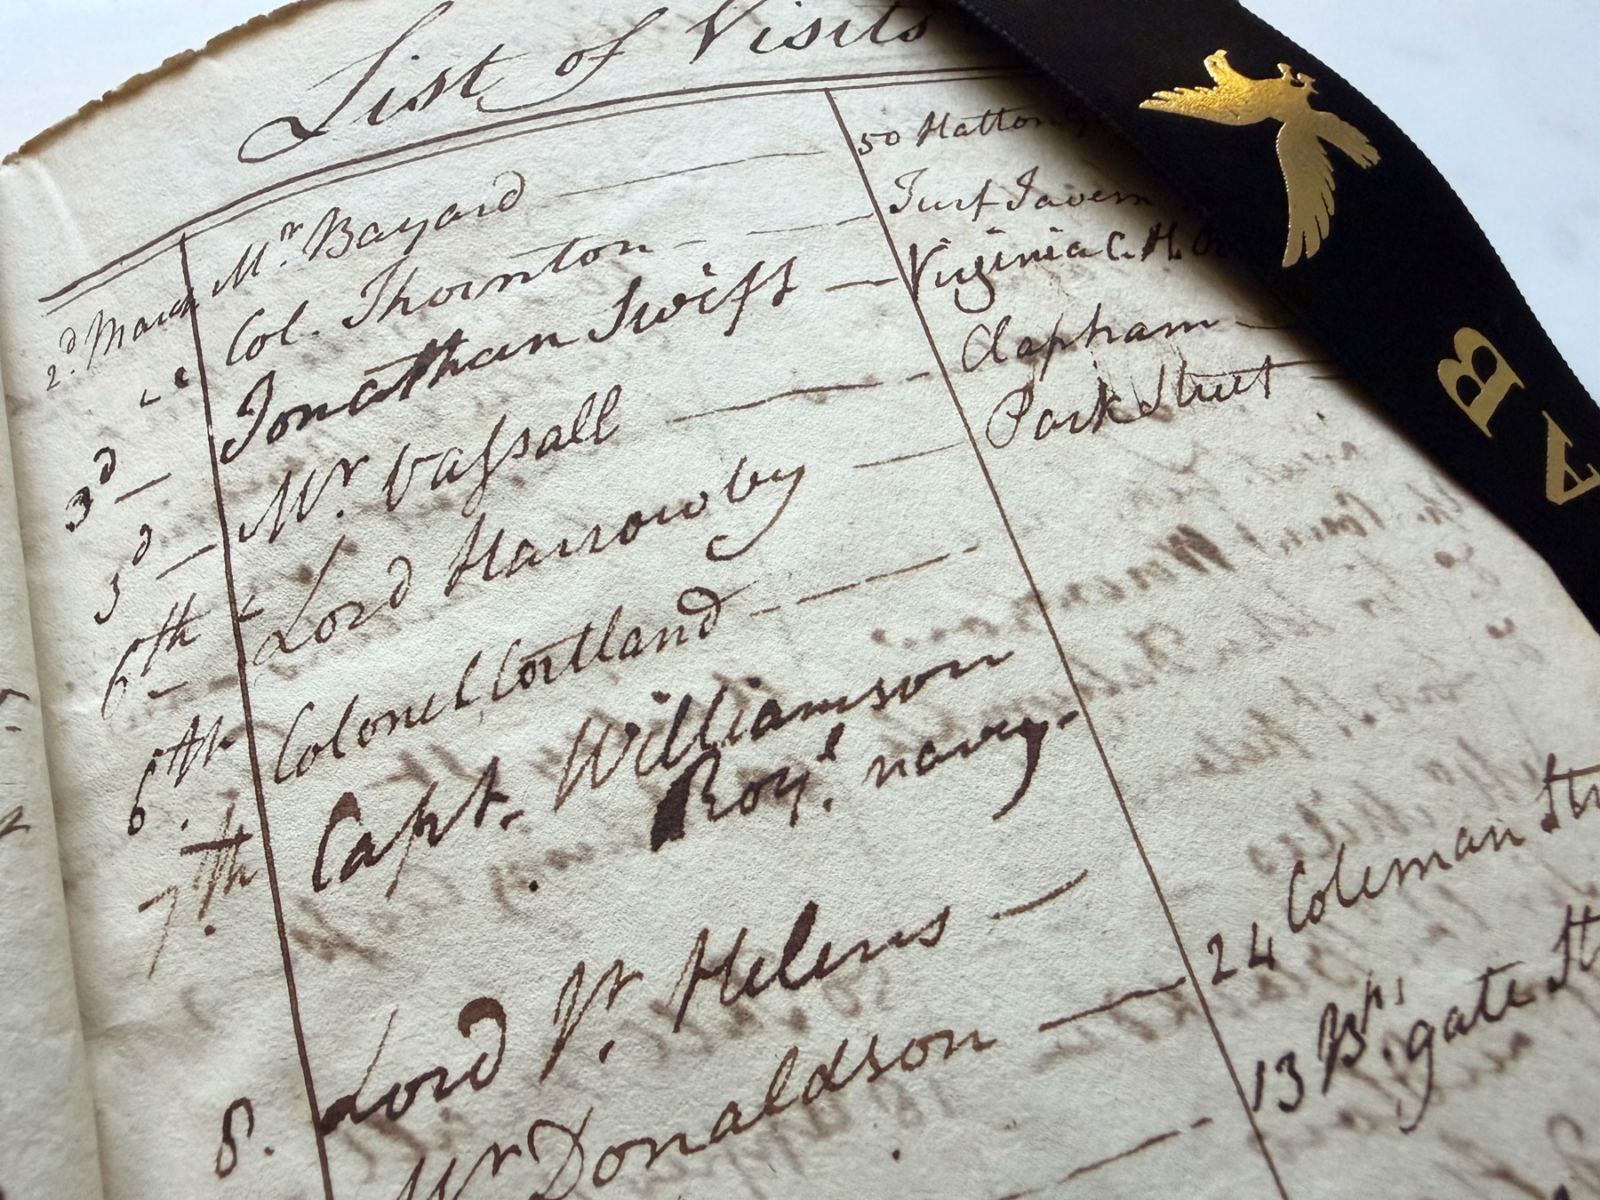 List of Visits
2d. March Mr. Bayard 50 Hatton
" Col. Thornton Turf Tavern
3d Jonathan Swift Virginia C. H.
5d Mr. Vassall Clapham
6th Lord Harrowby Park Street
6th Colonel Cortland
7th. Capt. Williamson
Royl. navy.
8. Lord St. Helens
Mr Donaldson 24 Coleman Str
13 Bps. gate St
A B